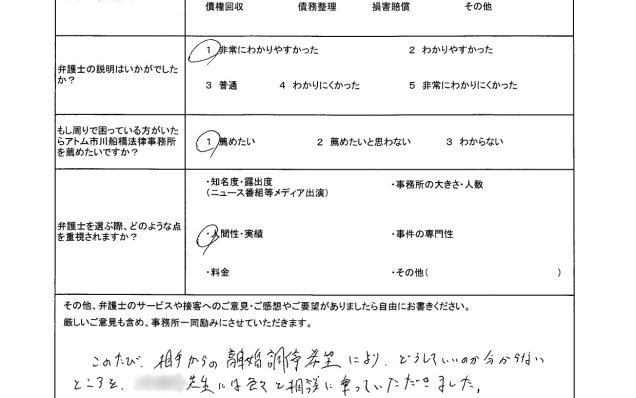 債権回収 債務整理 損害賠償 その他
弁護士の説明はいかがでしたか？
1 非常にわかりやすかった 2 わかりやすかった
3 普通 4 わかりにくかった 5 非常にわかりにくかった
もし周りで困っている方がいたらアトム市川船橋法律事務所を薦めたいですか？
1 薦めたい 2 薦めたいと思わない 3 わからない
弁護士を選ぶ際、どのような点を重視されますか？
・知名度・露出度
（ニュース番組等メディア出演）
・事務所の大きさ・人数
・人間性・実績 ・事件の専門性
・料金 ・その他（ ）
その他、弁護士のサービスや接客へのご意見・ご感想やご要望がありましたら自由にお書きください。
厳しいご意見も含め、事務所一同励みにさせていただきます。
このたび、相手からの離婚調停希望により、どうしていいのか分からない
ところを、先生には色々と相談に乗っていただきました。